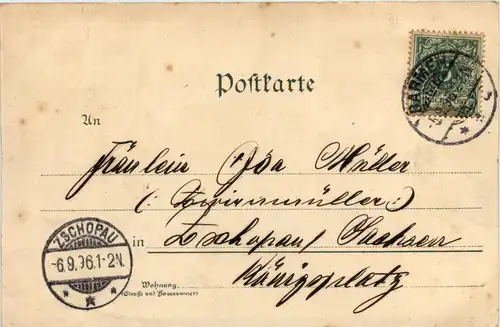 Postkarte
BARMEN
An
Fräulein Ida Müller
(: Zwirnmüller :)
in Zschopau / Sachsen
ZSCHOPAU
-6.9.96.1-2N.
Königsplatz
Wohnung
(Straße und Hausnummer)